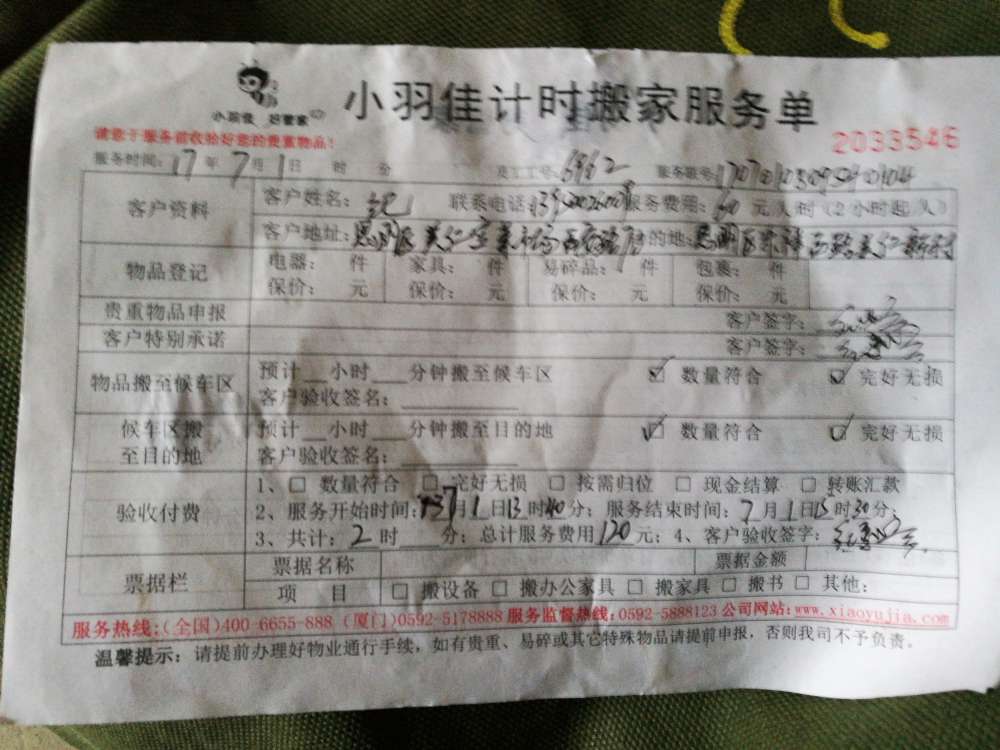 小羽佳 好管家
小羽佳计时搬家服务单
请您于服务前收验好您的贵重物品!
2033546
服务时间: 17 年 7 月 1 日 时 分 员工工号: 6962 服务账号:
客户资料
客户姓名: 纪 联系电话: 服务费用: 60 元/人/时 (2小时起/人)
客户地址: 思明区 目的地: 思明区
物品登记
电器: 件 家具: 件 易碎品: 件 包裹: 件
保价: 元 保价: 元 保价: 元 保价: 元
贵重物品申报 客户签字:
客户特别承诺 客户签字:
物品搬至候车区
预计 小时 分钟搬至候车区 ☑ 数量符合 ☑ 完好无损
客户验收签名:
候车区搬至目的地
预计 小时 分钟搬至目的地 ☑ 数量符合 ☑ 完好无损
客户验收签名:
验收付费
1、□ 数量符合 □ 完好无损 □ 按需归位 □ 现金结算 □ 转账汇款
2、服务开始时间: 7月1日13时40分; 服务结束时间: 7月1日15时30分;
3、共计: 2 时 分; 总计服务费用 120 元; 4、客户验收签字:
票据栏
票据名称 票据金额
项 目 □ 搬设备 □ 搬办公家具 □ 搬家具 □ 搬书 □ 其他:
服务热线:(全国)400-6655-888 (厦门)0592-5178888 服务监督热线:0592-5888123 公司网站:www.xiaoyujia.com
温馨提示: 请提前办理好物业通行手续, 如有贵重、易碎或其它特殊物品请提前申报, 否则我司不予负责。